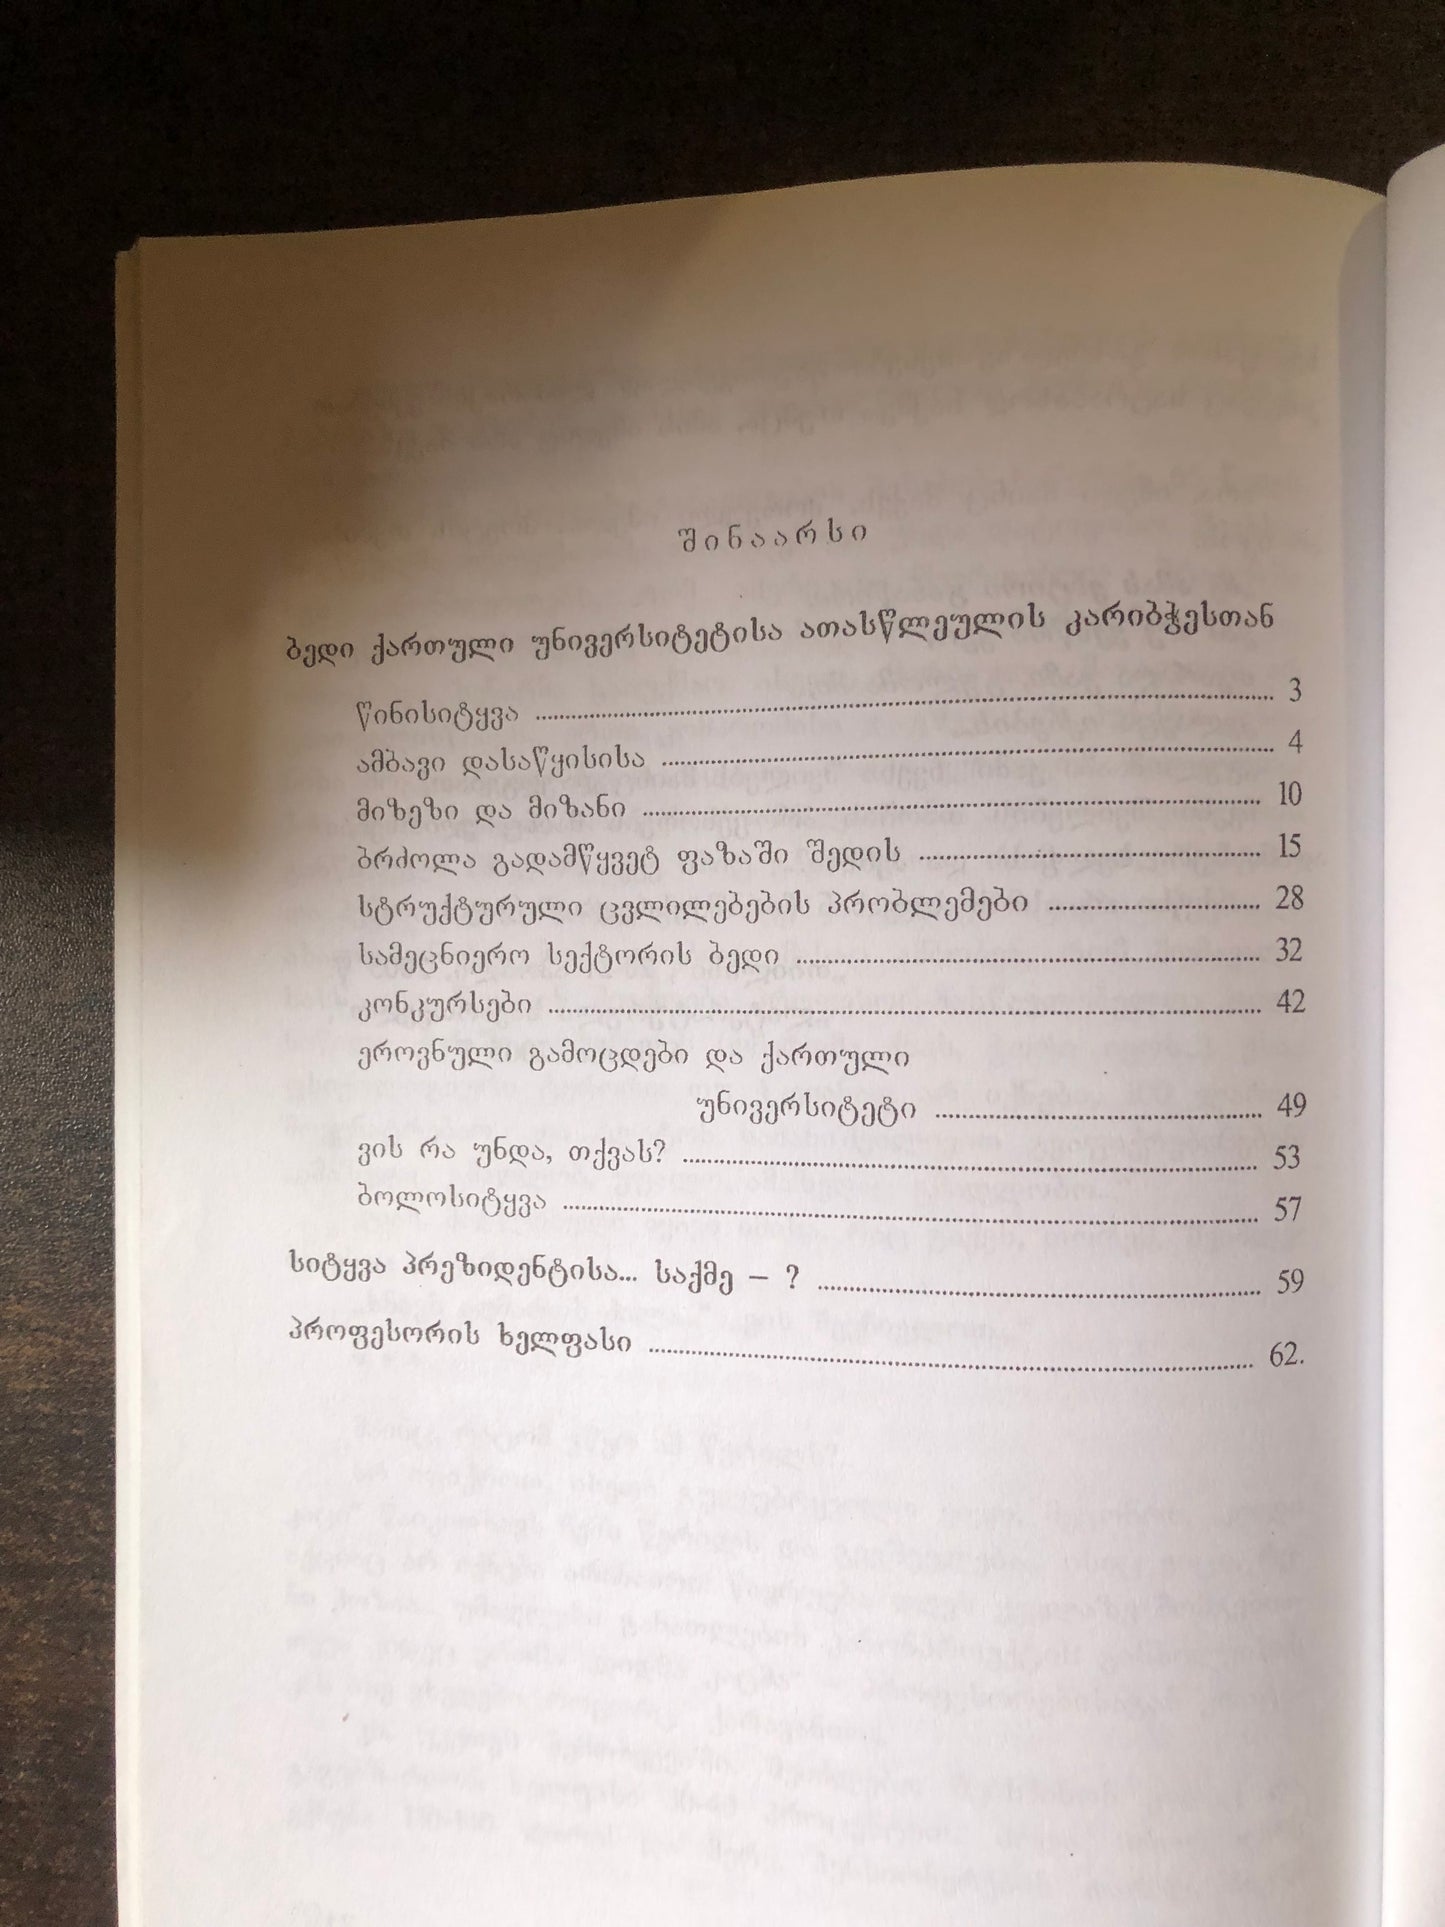 შინაარსი
ბედი ქართული უნივერსიტეტისა ათასწლეულის კარიბჭესთან
წინისიტყვა ........ 3
ამბავი დასაწყისისა ........ 4
მიზეზი და მიზანი ........ 10
ბრძოლა გადამწყვეტ ფაზაში შედის ........ 15
სტრუქტურული ცვლილებების პრობლემები ........ 28
სამეცნიერო სექტორის ბედი ........ 32
კონკურსები ........ 42
ეროვნული გამოცდები და ქართული
უნივერსიტეტი ........ 49
ვის რა უნდა, თქვას? ........ 53
ბოლოსიტყვა ........ 57
სიტყვა პრეზიდენტისა... საქმე – ? ........ 59
პროფესორის ხელფასი ........ 62.